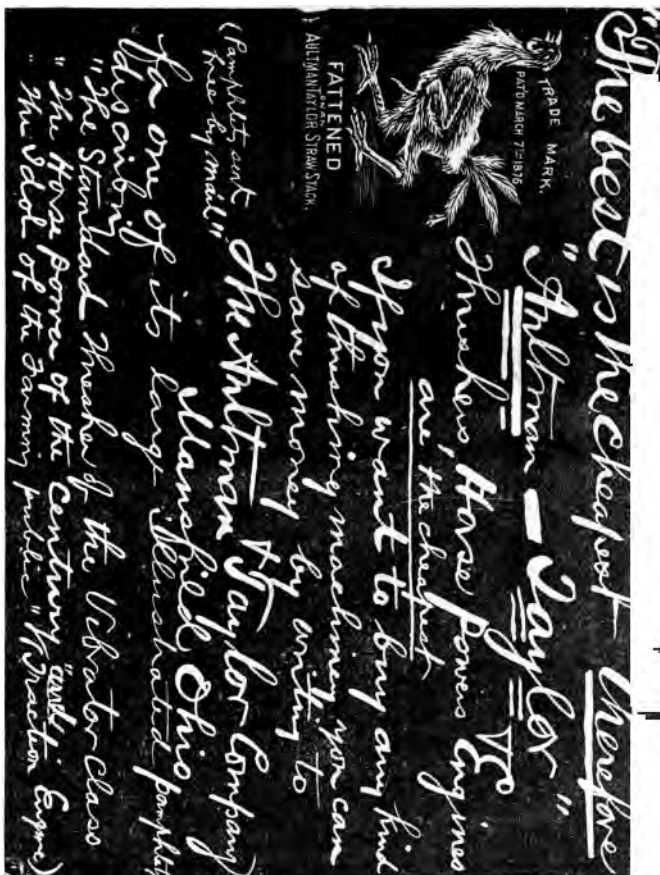 "The best is the cheapest therefore
"Aultman - Taylor"
Threshers, Horse Powers Engines &c
are, the cheapest
TRADE MARK.
PAT'D MARCH 7TH 1876.
FATTENED
ON AN
AULTMAN TAYLOR STRAW STACK.
If you want to buy any kind
of threshing machinery you can
save money by writing to
The Aultman & Taylor Company
Mansfield Ohio
(Pamphlets sent
free by mail"
for one of its large Illustrated pamphlets
describing
"The Standard Thresher of the Vibrator Class
"The Horse power of the Century "and
"The Idol of the Farming public" (Traction Engine)